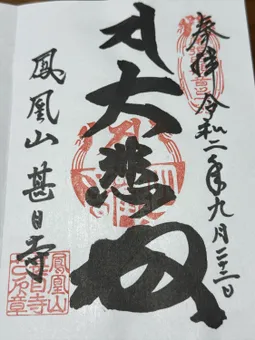 奉拝 令和二年九月二三日
大悲殿
鳳凰山 甚目寺
鳳凰山
甚目寺
之印章